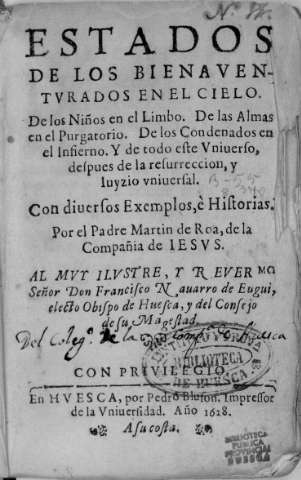 ESTADOS
DE LOS BIENAVEN-
TVRADOS EN EL CIELO.
De los Niños en el Limbo. De las Almas
en el Purgatorio. De los Condenados en
el Infierno. Y de todo este Vniuerso,
despues de la resurreccion, y
Iuyzio vniuersal.
Con diuersos Exemplos, è Historias.
Por el Padre Martin de Roa, de la
Compañia de IESVS.
AL MVY ILVSTRE, Y REVER.MO
Señor Don Francisco Nauarro de Eugui,
electo Obispo de Huesca, y del Consejo
de su Magestad.
Del Coleg.º de la Comp.ª Huesca
BIBLIOTECA
DE HUESCA
CON PRIVILEGIO.
En HVESCA, por Pedro Bluson. Impressor
de la Vniuersidad. Año 1628.
A su costa.
BIBLIOTECA
PUBLICA
PROVINCIAL
HUESCA